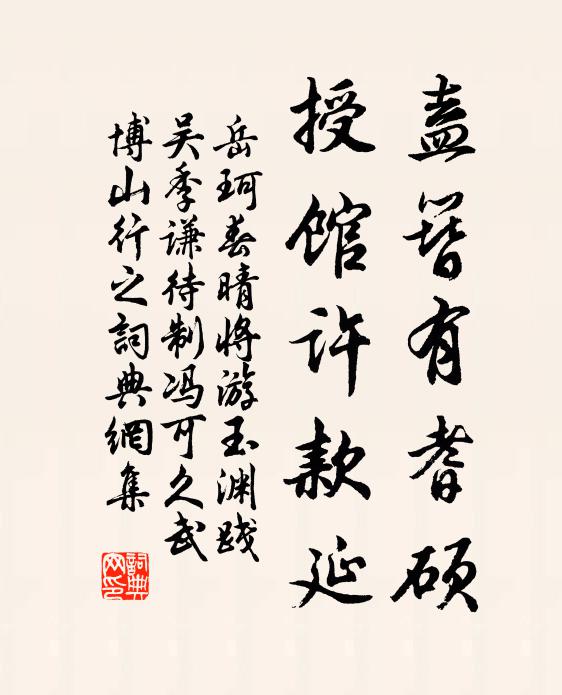 盍簪有耆硕
授馆许款延
岳珂春晴将游玉渊践
吴季谦待制冯可久武
博山行之詞典網集
詞典
网印